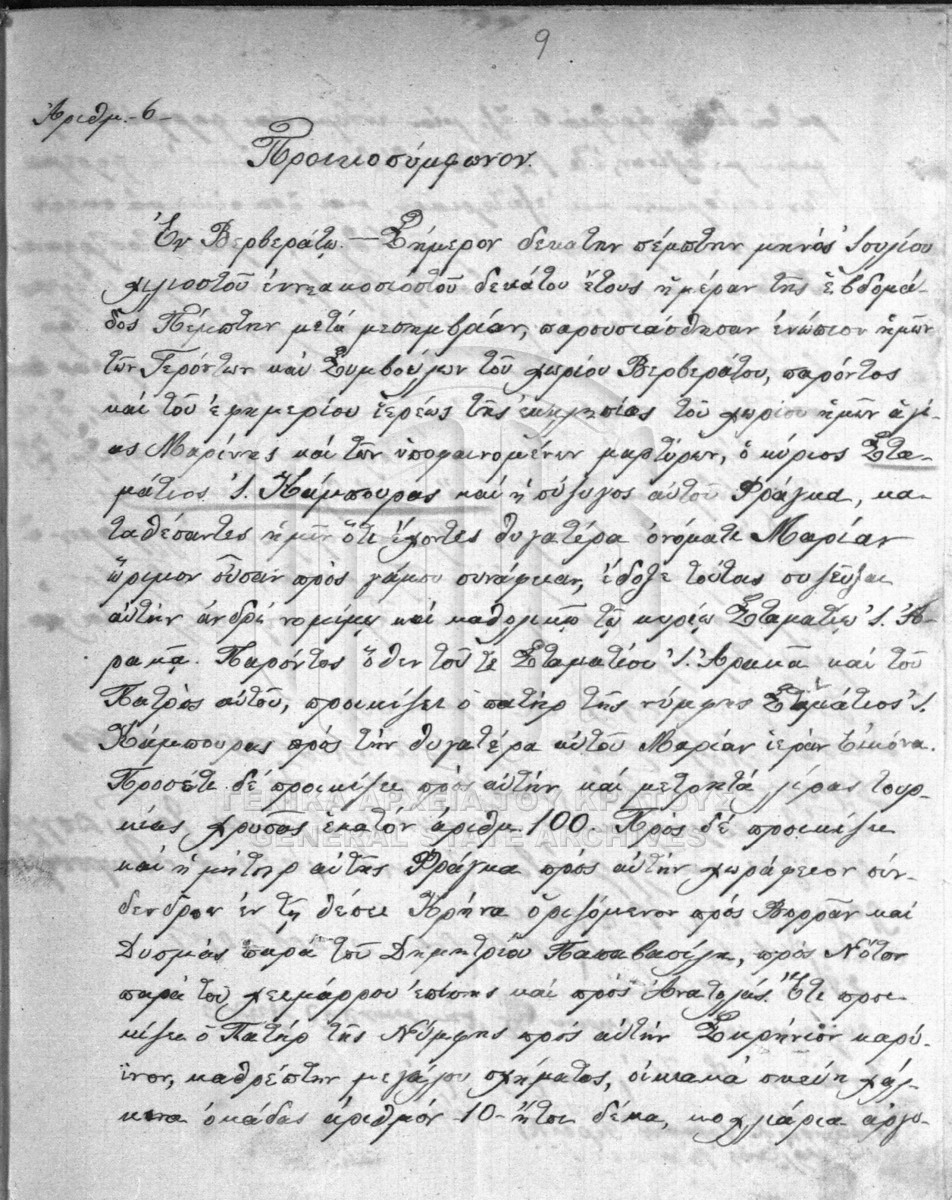 9
Ἀριθμ. -6-
Προικοσύμφωνον.
Ἐν Βερβεράτῳ. — Σήμερον δεκάτην πέμπτην μηνός Ἰουλίου
χιλιοστοῦ ἐννεακοσιοστοῦ δεκάτου ἔτους ἡμέραν τῆς ἑβδομά-
δος Πέμπτην μετά μεσημβρίαν, παρουσιάσθησαν ἐνώπιον ἡμῶν
τῶν Γερόντων καί Συμβούλων τοῦ χωρίου Βερβεράτου, παρόντος
καί τοῦ ἐφημερίου ἱερέως τῆς ἐκκλησίας τοῦ χωρίου ἡμῶν ἁγί-
ας Μαρίνης καί τῶν ὑποφαινομένων μαρτύρων, ὁ κύριος Στα-
μάτιος Ἰ. Κάμπουρας καί ἡ σύζυγος αὐτοῦ Φράγκα, κα-
ταθέσαντες ἡμῖν ὅτι ἔχοντες θυγατέρα ὀνόματι Μαρίαν
ὥριμον οὖσαν πρός γάμου συνάφειαν, ἔδοξε τούτοις συζεῦξαι
αὐτήν ἀνδρί νομίμῳ καί καθολικῷ τῷ κυρίῳ Σταματίῳ Ἰ. Ἀ-
ρακᾷ. Παρόντος ὅθεν τοῦ τε Σταματίου Ἰ. Ἀρακᾶ καί τοῦ
Πατρός αὐτοῦ, προικίζει ὁ πατήρ τῆς νύμφης Σταμάτιος Ἰ.
Κάμπουρας πρός τήν θυγατέρα αὐτοῦ Μαρίαν ἱεράν Εἰκόνα.
Προσέτι δέ προικίζει πρός αὐτήν καί μετρητά λίρας τουρ-
κίας χρυσᾶς ἑκατόν ἀριθμ. 100. Πρός δέ προικίζει
καί ἡ μήτηρ αὐτῆς Φράγκα πρός αὐτήν χωράφιον σύν-
δενδρον ἐν τῇ θέσει Κρήνα ὁριζόμενον πρός Βορρᾶν καί
Δυσμάς παρά τοῦ Δημητρίου Παπαβασίλη, πρός Νότον
παρά τοῦ χειμάρρου ἐπίσης καί πρός Ἀνατολάς. Ἔτι προι-
κίζει ὁ Πατήρ τῆς Νύμφης πρός αὐτήν Σκρήνιον καρύ-
ϊνον, καθρέπτην μεγάλου σχήματος, οἰκιακά σκεύη χάλ-
κινα ὀκάδας ἀριθμόν 10- ἤτοι δέκα, κοχλιάρια ἀργυ-
ΓΕΝΙΚΑ ΑΡΧΕΙΑ ΤΟΥ ΚΡΑΤΟΥΣ
GENERAL STATE ARCHIVES